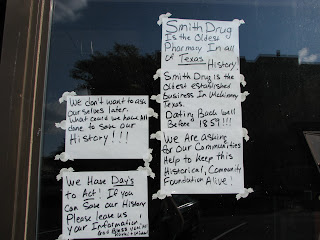 Smith Drug
Is the Oldest
Pharmacy In all
of Texas
History!
Smith Drug is the
Oldest established
business In McKinney
Texas.
Dating Back Well
Before 1859!
We Are asking
for Our Communities
Help to Keep this
Historical, Community
Foundation Alive!
We don't want to ask
Ourselves later.
What could we have All
done to save our
History!!!
We Have Day's
to Act! If you
can Save our History
Please leave us
your Information,